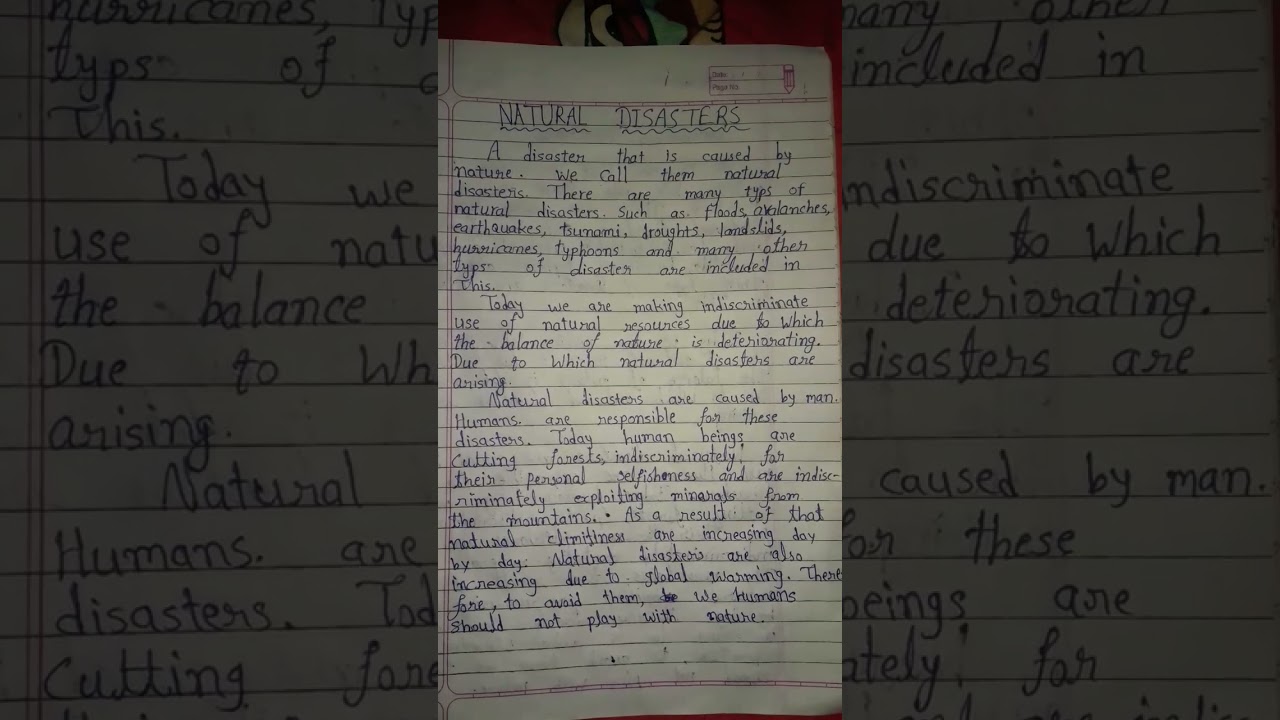 Date : /
Page No.
NATURAL DISASTERS
A disaster that is caused by
nature. We call them natural
disasters. There are many typs of
natural disasters. Such as. floods, avalanches,
earthquakes, tsunami, droughts, landslids,
hurricanes, typhoons and many other
typs of disaster are included in
This.
Today we are making indiscriminate
use of natural resources due to Which
the balance of nature is deteriorating.
Due to Which natural disasters are
arising.
Natural disasters are caused by man.
Humans. are responsible for these
disasters. Today human beings are
Cutting forests, indiscriminately, for
their personal selfishness and are indisc-
riminately exploiting minarals from
the mountains. As a result of that
natural are increasing day
by day. Natural disasters are also
increasing due to global warming. There
fore, to avoid them, we humans
should not play with nature.